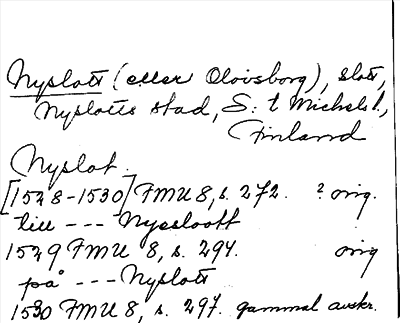 Nyslott (eller Olovisborg), slott,
Nyslotts stad, S:t Michels l.,
Finland
Nyslot.
[1528-1530] FMU 8, s. 272. ? orig.
till --- Nyssloott
1529 FMU 8, s. 294. orig
på --- Nyslott
1530 FMU 8, s. 297. gammal avskr.